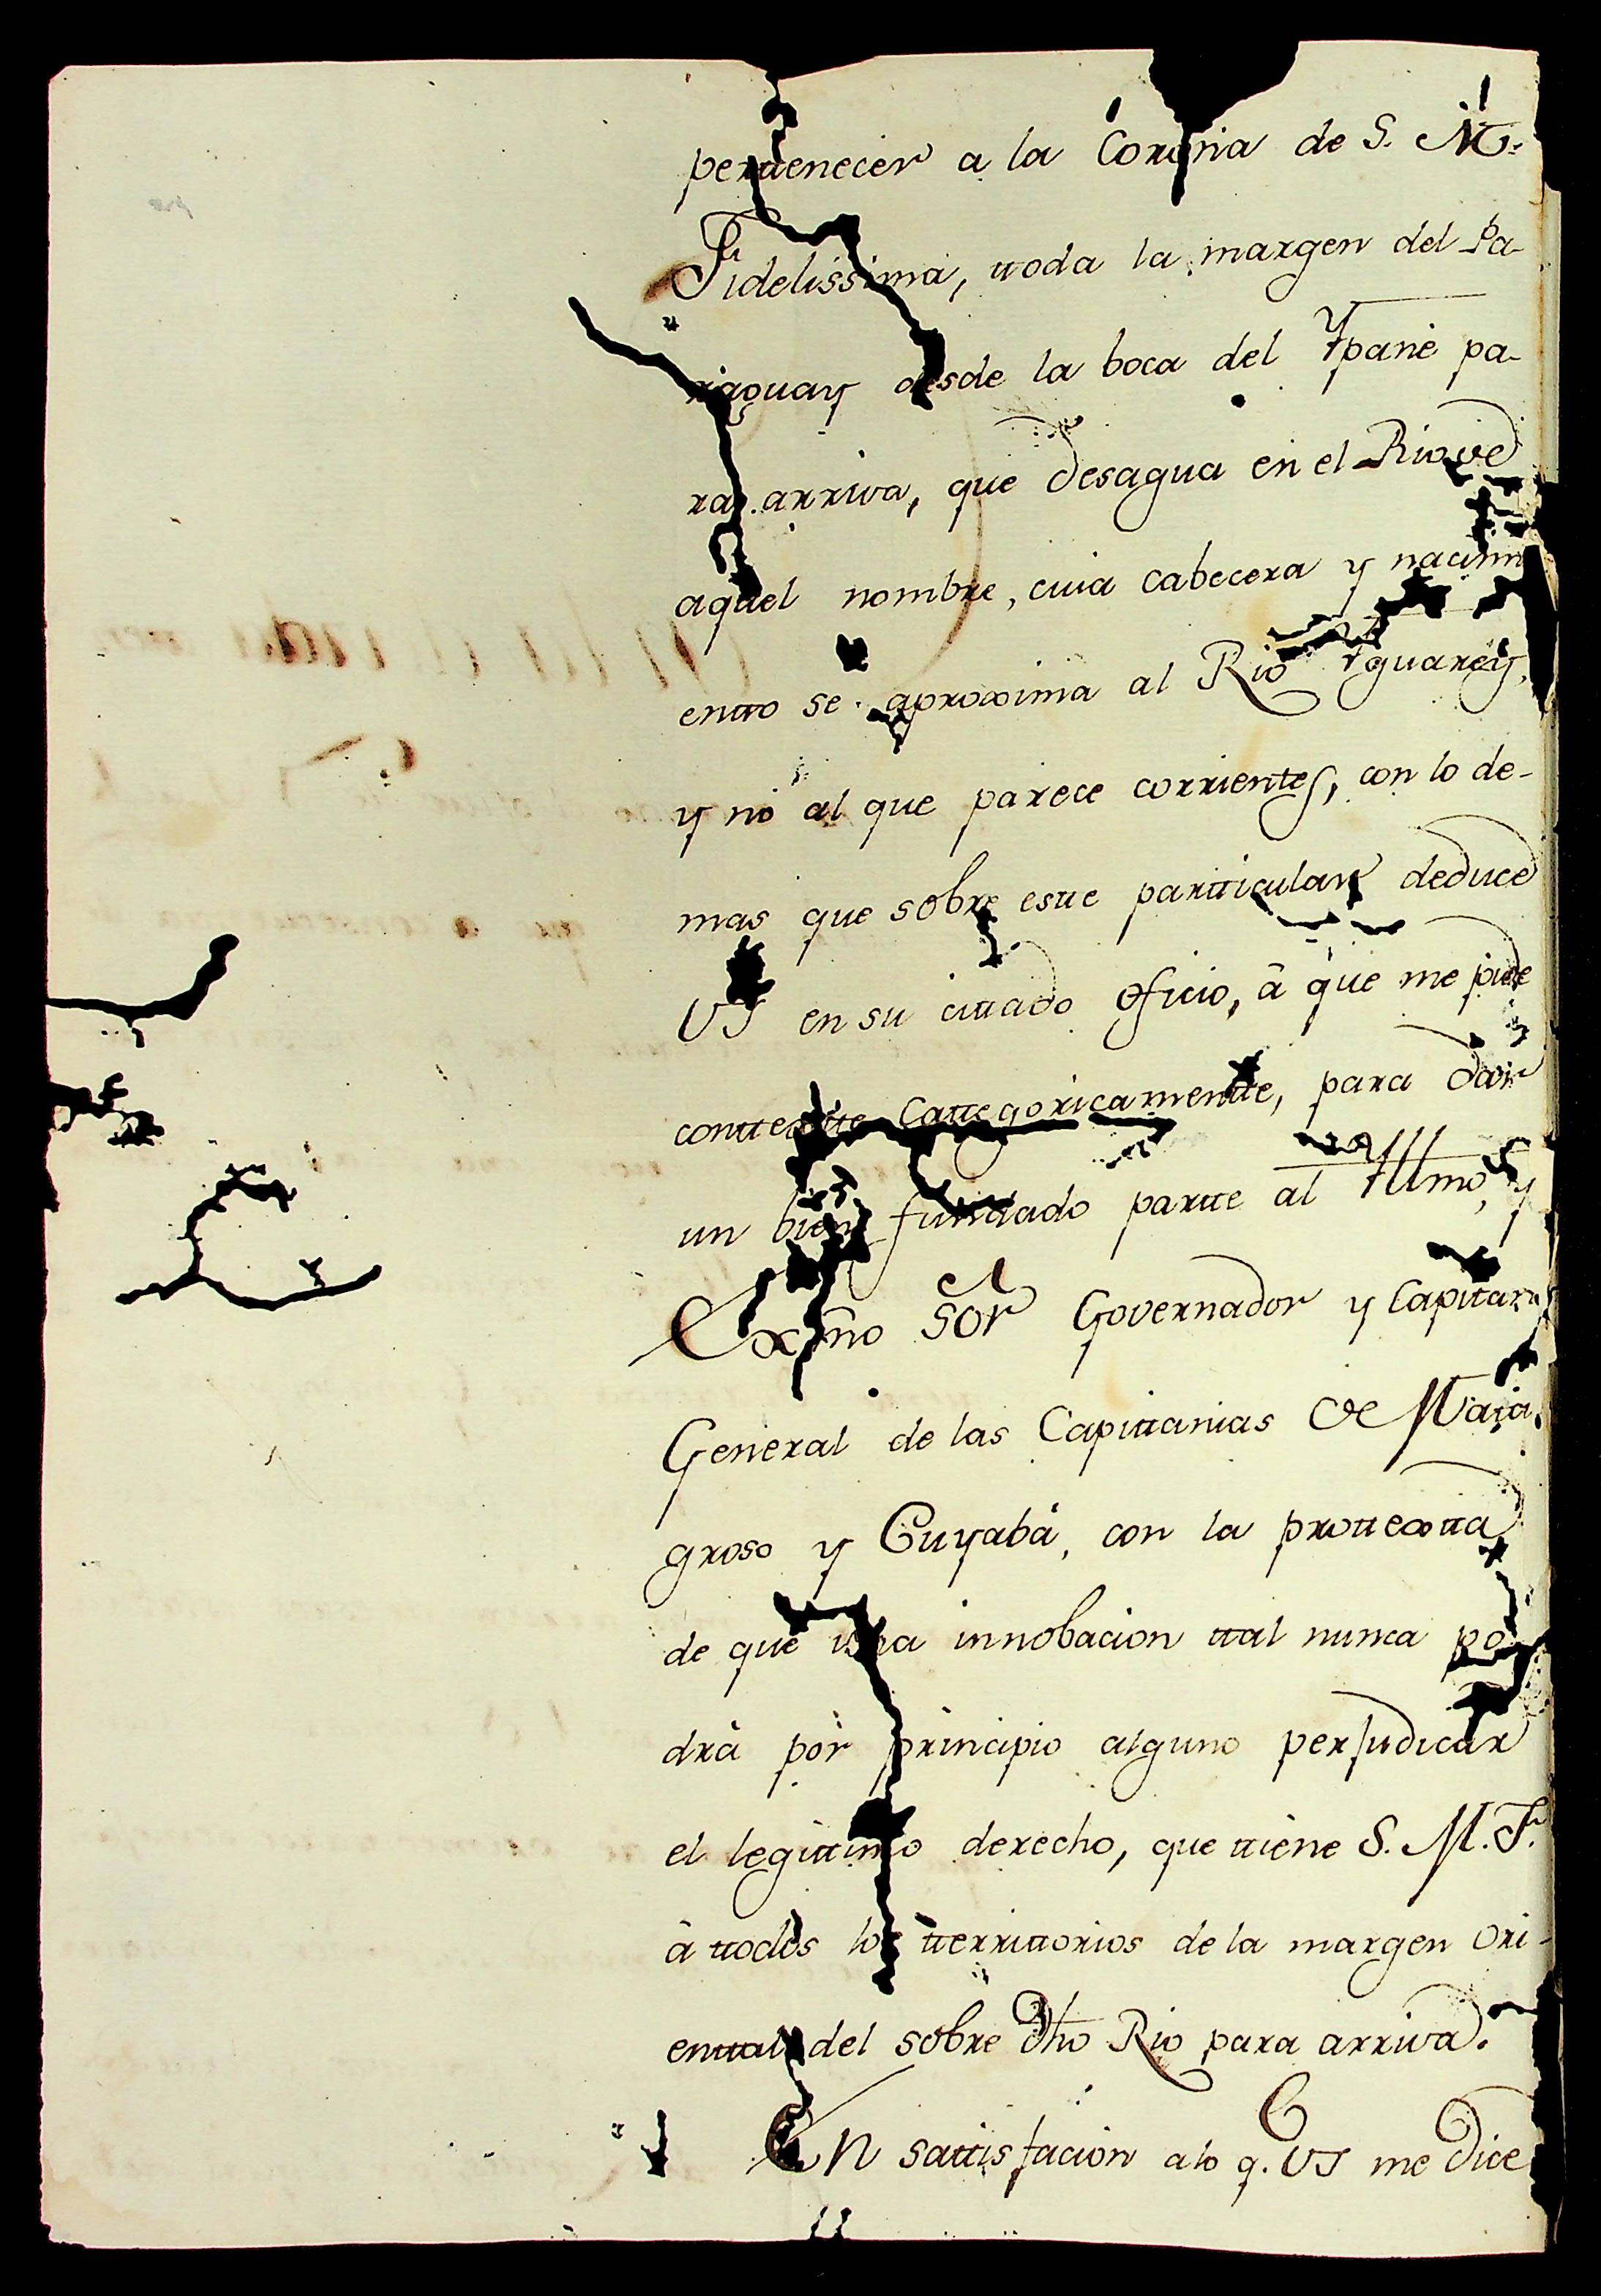 pertenecer a la Corona de S. M.
Fidelissima, toda la margen del Pa-
raguay desde la boca del Ypané pa-
ra arriva, que desagua en el Rio de
aquel nombre, cuia cabecera y nacimi
ento se aproxima al Rio Yguarey,
y no al que parece corrientes, con lo de-
mas que sobre este particular deduce
VS en su citado oficio, â que me pide
conteste Cattegoricamente, para dar
un bien fundado parte al Yllmo, y
Exm̃o Sor Governador y Capitan
General de las Capitanias de Mato
groso y Cuyabá, con la protexta
de que una innobacion tal nunca po
drá por principio alguno perjudicar
el legitimo derecho, que tiene S. M. F.
â todos los territorios de la margen ori-
ental del sobre dho Rio para arriva.
En satisfacion a lo q. VS me dice